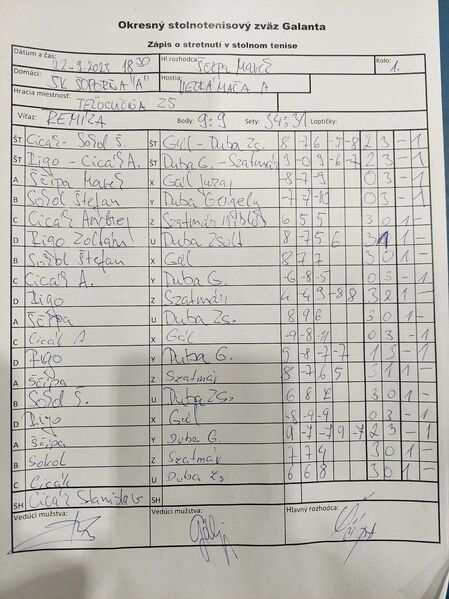 Okresný stolnotenisový zväz Galanta
Zápis o stretnutí v stolnom tenise
Dátum a čas: 22.9.2023 18:30 Hl.rozhodca: Ščípa Mareš Kolo: 1.
Domáci: ŠK ŠOPORŇA "A" Hostia: VEĽKÁ MAČA A
Hracia miestnosť: TELOCVIČŇA ZŠ
Víťaz: REMÍZA Body: 9:9 Sety: 34:31 Loptičky:
ŠT Cicák - Sokol Š. ŠT Gál - Duba Zs. 8 -7 6 -5 -8 2 3 - 1
ŠT Rigo - Cicák A. ŠT Duba G. - Szatmár 2 3 - 1
A Ščípa X Gál Juraj -8 -7 -9 0 3 - 1
B Sokol Štefan Y Duba Gergely -7 -7 -10 0 3 - 1
C Cicák Andrej Z Szatmár 6 5 5 3 0 1 -
D Rigo Zoltán U Duba Zsolt 8 -7 5 6 3 1 1 -
B Sokol Štefan X Gál 8 7 7 3 0 1 -
C Cicák A. Y Duba G. -6 -8 -5 0 3 - 1
D Rigo Z Szatmár 3 2 1 -
A Ščípa U Duba Zs. 8 9 6 3 0 1 -
C Cicák A X Gál -9 -8 -11 0 3 - 1
D Rigo Y Duba G. 9 -8 -7 -7 1 3 - 1
A Ščípa Z Szatmár 8 -7 6 5 3 1 1 -
B Sokol Š. U Duba Zs. 6 8 3 0 1 -
D Rigo X Gál -8 -9 -9 0 3 - 1
A Ščípa Y Duba G. 9 -7 -7 9 -7 2 3 - 1
B Sokol Z Szatmár 7 7 4 3 0 1 -
C Cicák U Duba Zs 6 6 8 3 0 1 -
SH Cicák Stanislav SH
Vedúci mužstva: Vedúci mužstva: Hlavný rozhodca: